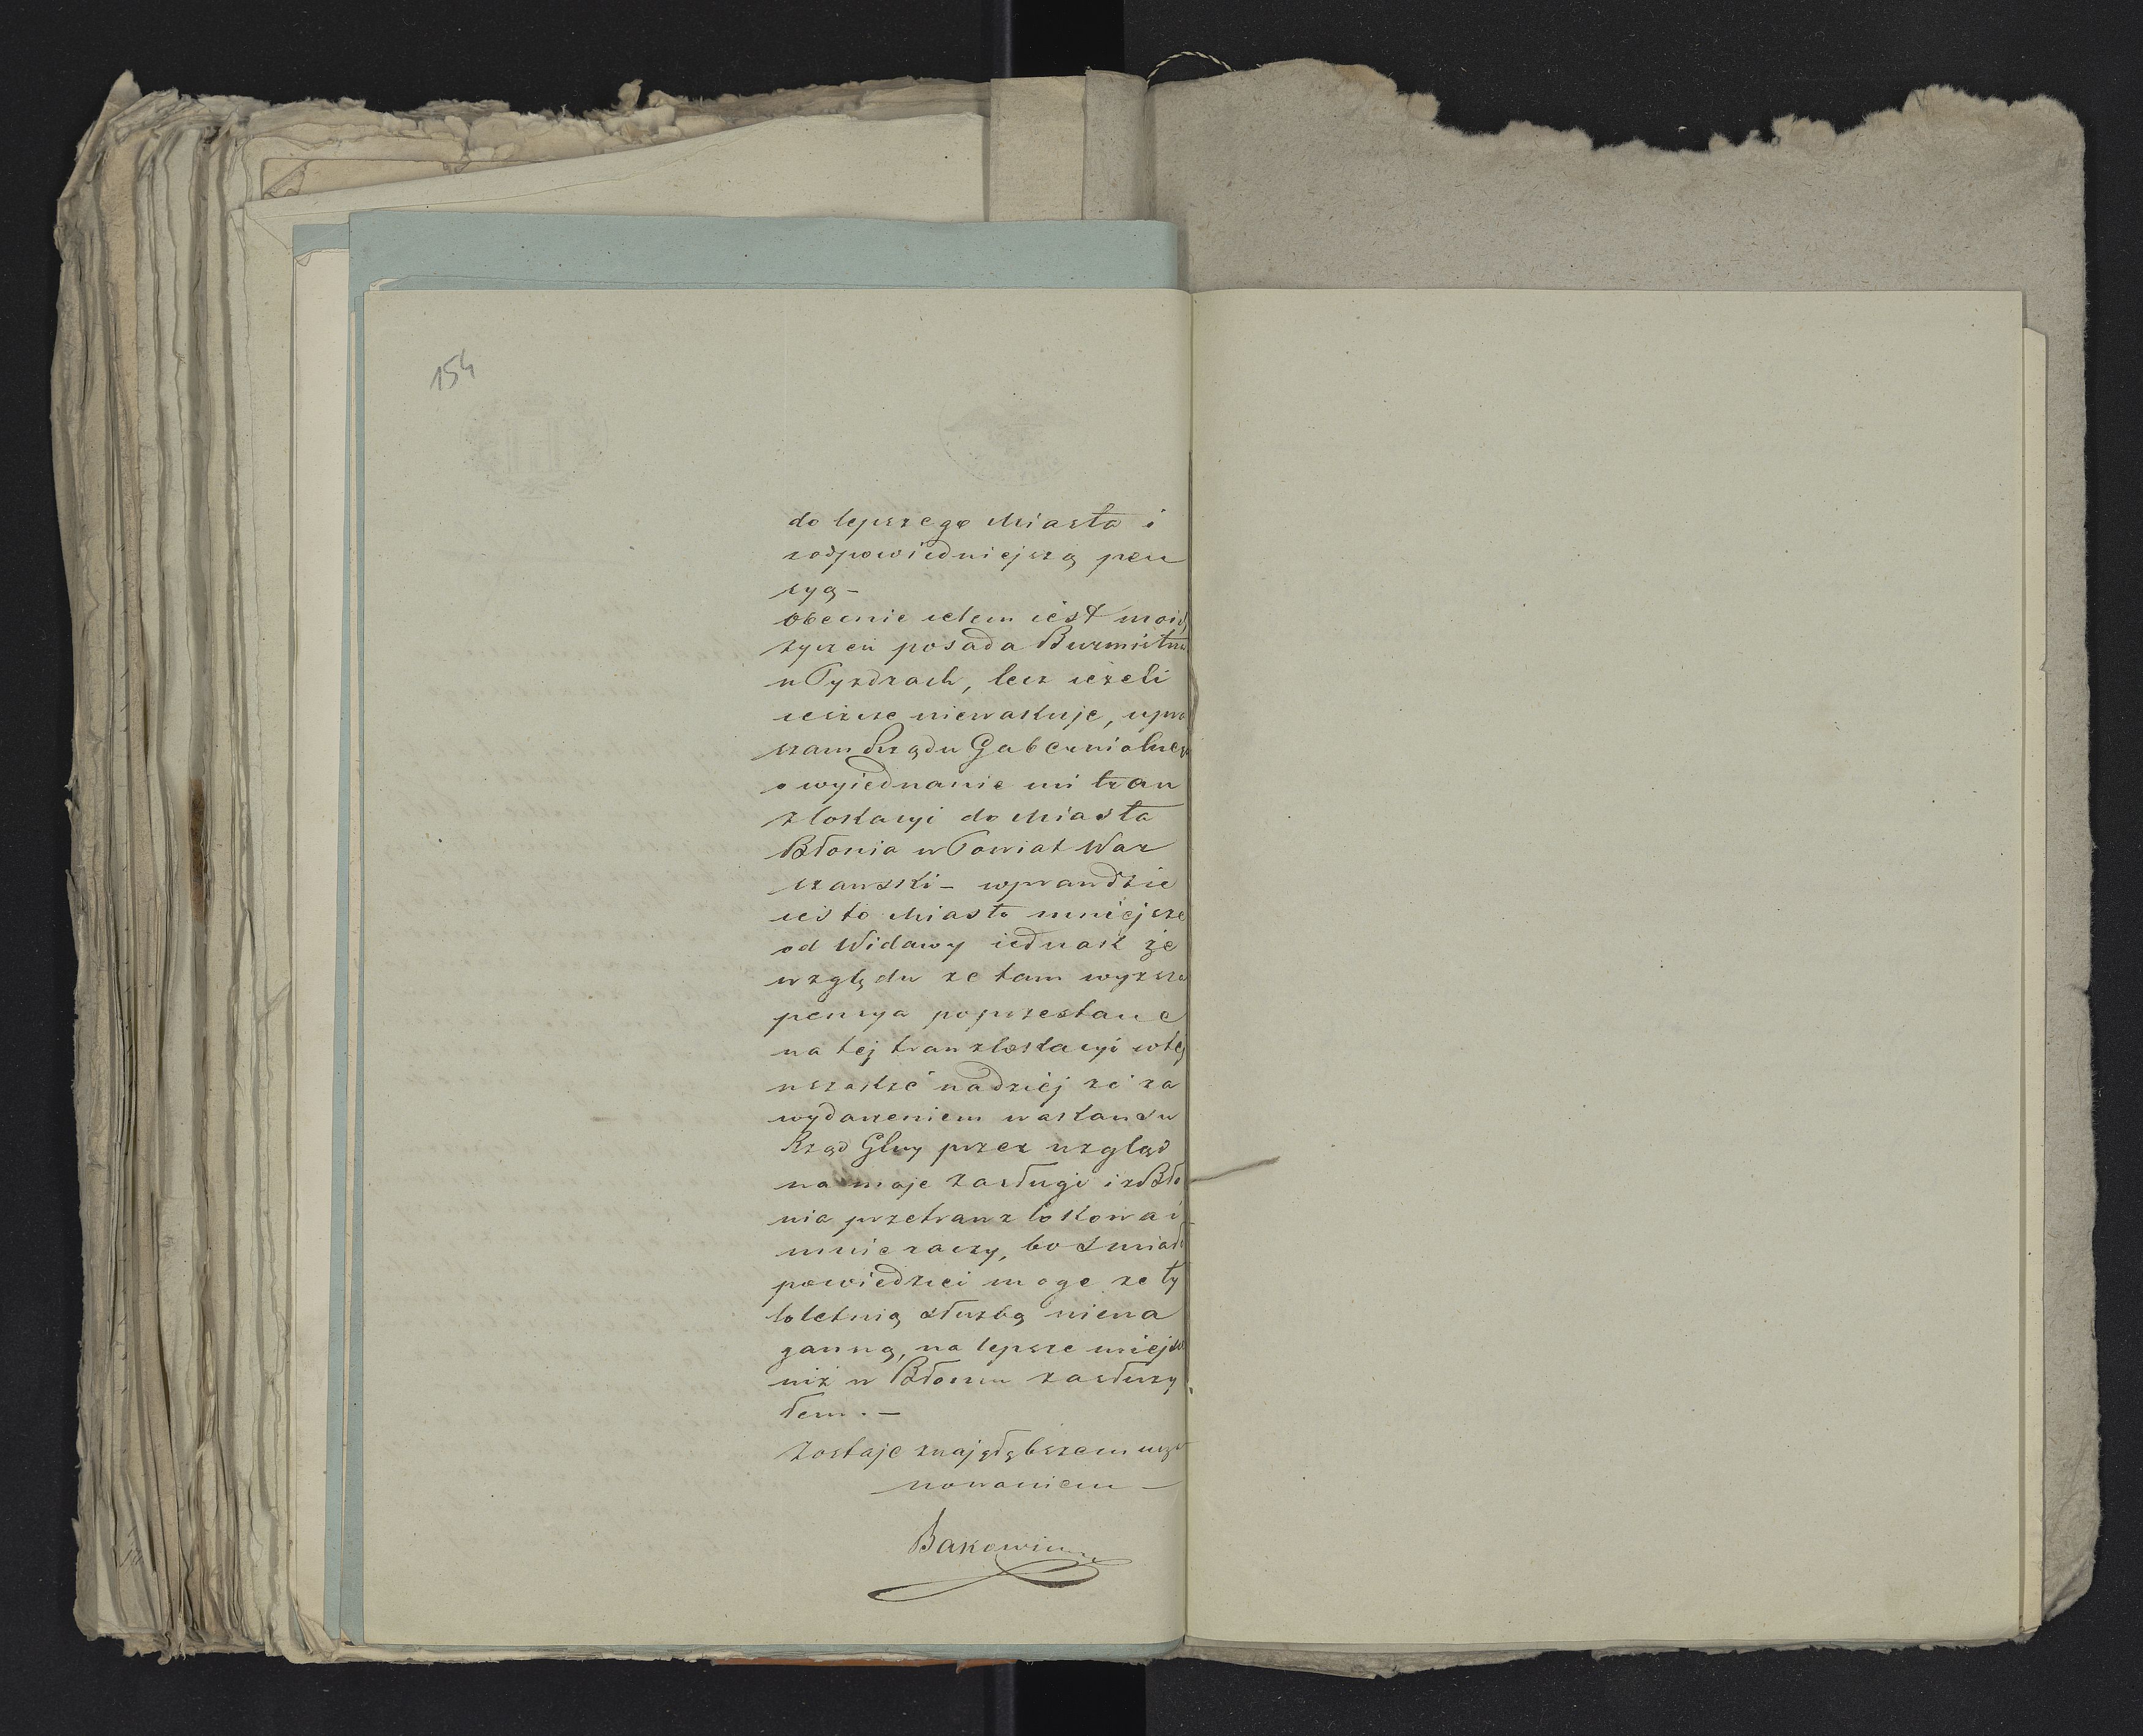 154
do lepszego Miasta i
zodpowiedniejszą pen
syą –
obecnie celem iest moich
życzeń posada Burmistrza
w Pyzdrach, lecz ieżeli
ieszcze niewakuje, upra
szam Rządu Gubernialnego
o wyiednanie mi tran
zlokacyi do Miasta
Błonia w Powiat War
szawski – wprawdzie
iest to Miasto mniejsze
od Widawy iednak ze
względu ze tam wyzsza
pensya poprzestane
na tej tranzlokacyi w tej
wszakże nadziej ze za
wydarzeniem wakansu
Rząd Glny przez wzgląd
na moje zasługi i z Bło
nia przetranzlokować
mnie raczy, bo smiało
powiedzieć moge ze ty
loletnią służbą niena
ganną, na lepsze miejsce
niż w Błoniu zasłuży
łem. –
Zostaje znajgłębszem usza
nowaniem –